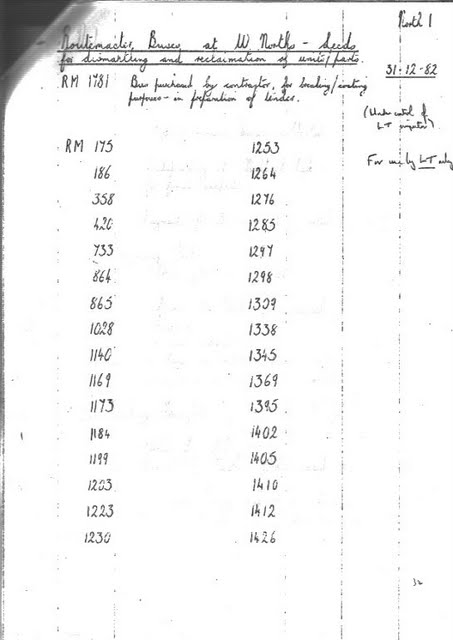 North 1
Routemaster Buses at W. Norths - Leeds
for dismantling and reclamation of units/parts.
31-12-82
RM 1781 Bus purchased by contractor, for breaking/costing
purposes - in preparation of tender.
(Under control of
LT inspector)
For use by LT only
RM 175 1253
186 1264
358 1276
420 1285
733 1297
864 1298
865 1309
1028 1338
1140 1345
1169 1369
1173 1395
1184 1402
1199 1405
1203 1410
1223 1412
1230 1426
32